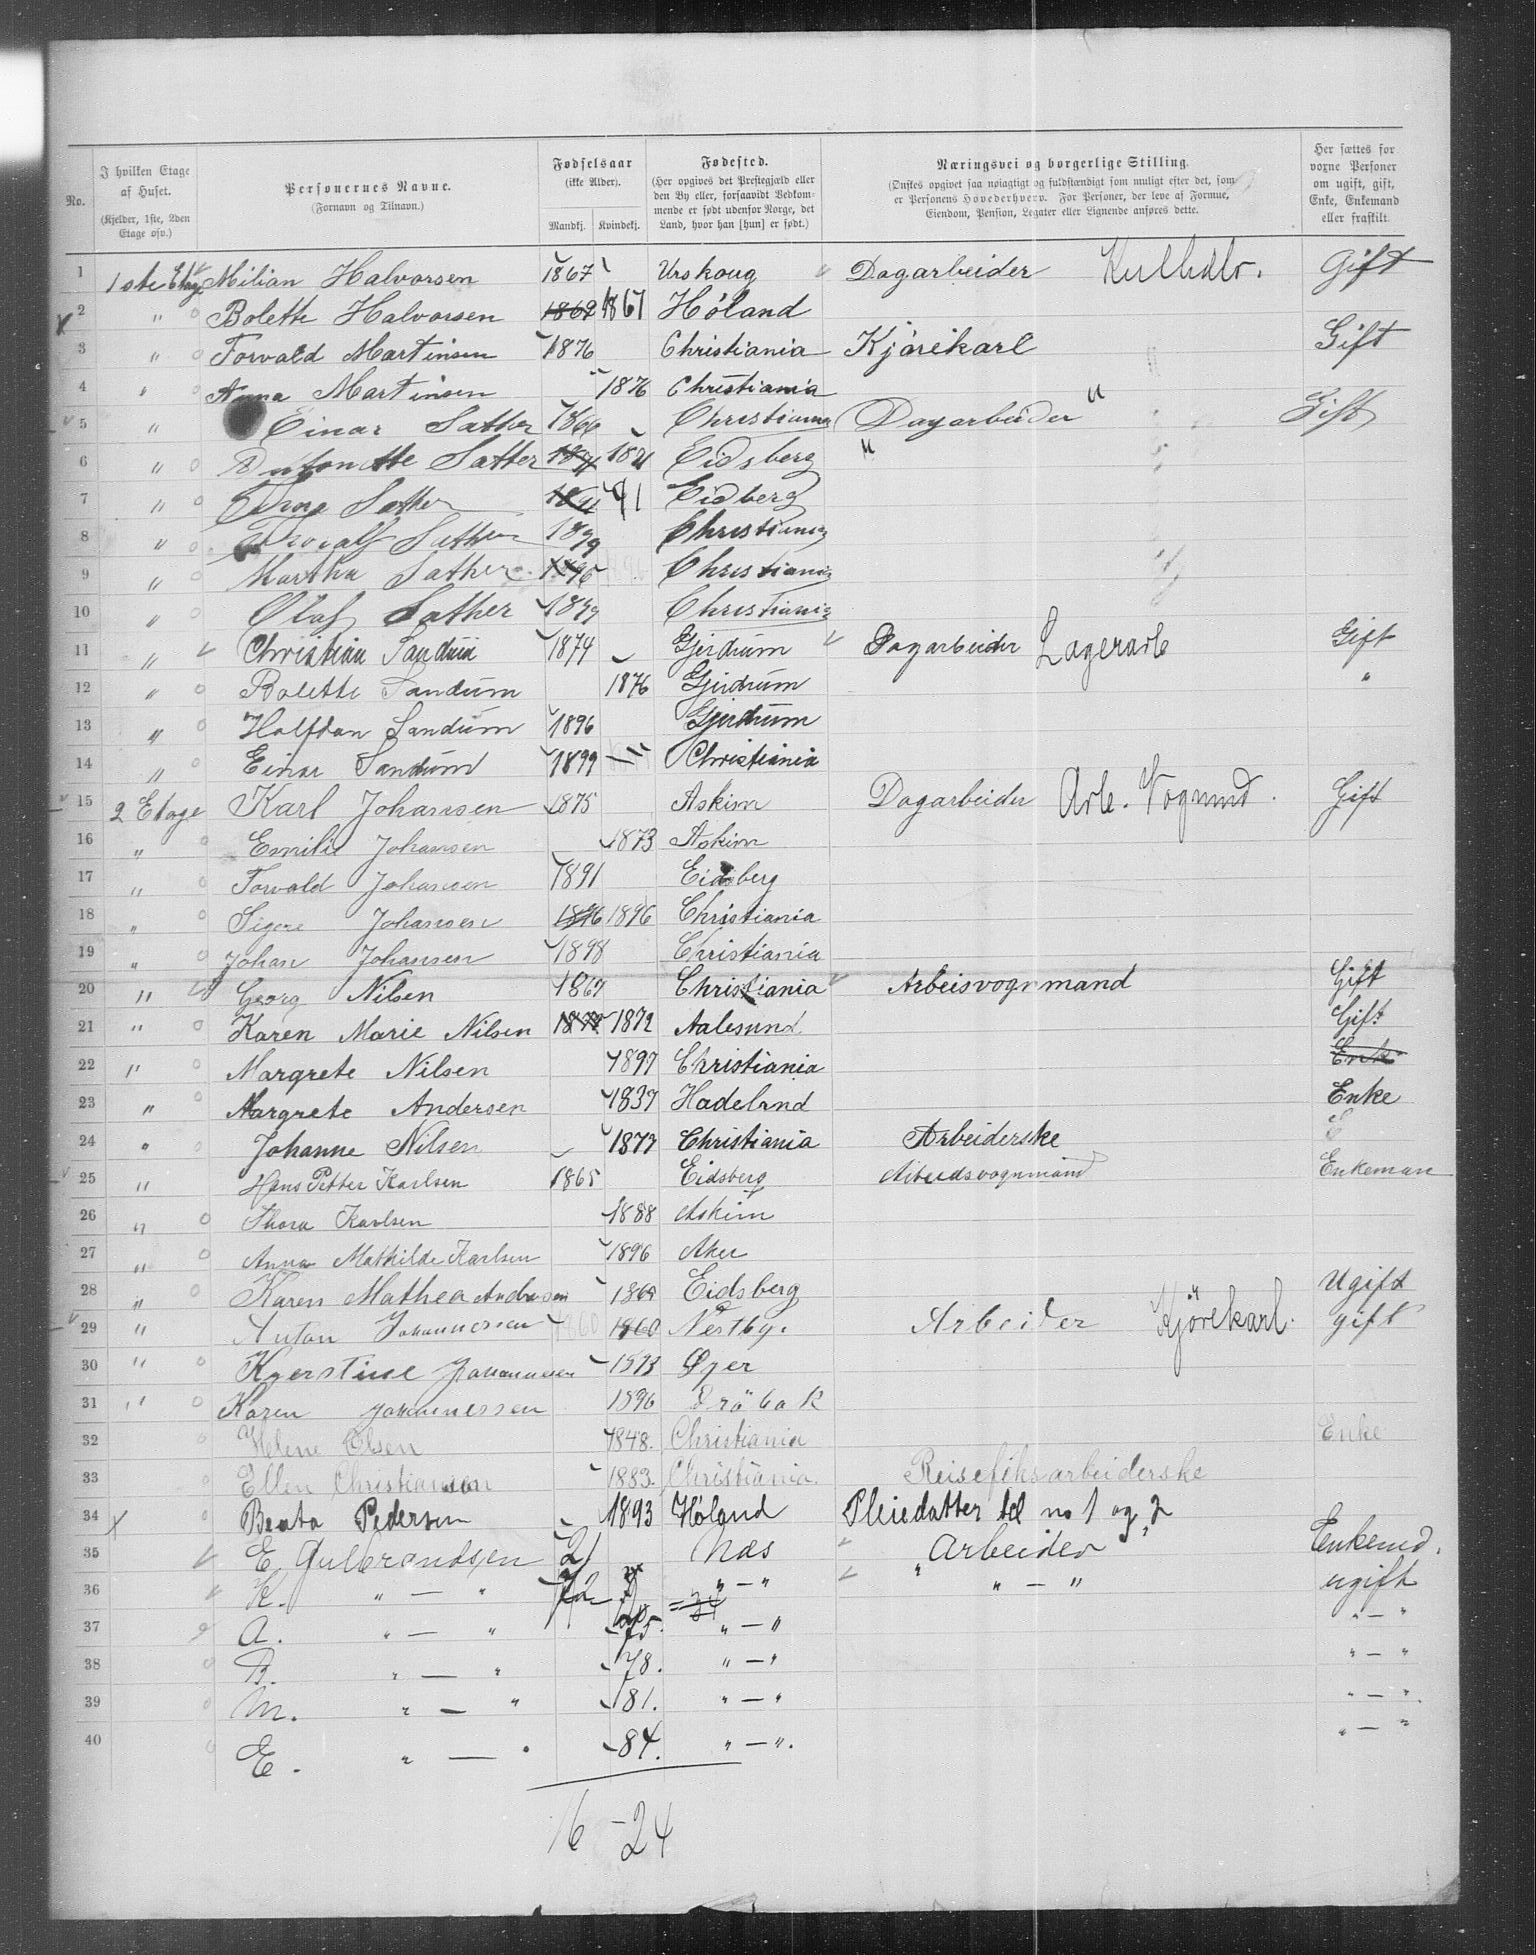 No.
I hvilken Etage af Huset.
(Kjelder, 1ste, 2den Etage osv.)
Personernes Navne.
(Fornavn og Tilnavn.)
Fødselsaar
(ikke Alder).
Mandkj. Kvindekj.
Fødested.
(Her opgives det Prestegjæld eller den By eller, forsaavidt Vedkommende er født udenfor Norge, det Land, hvor han [hun] er født.)
Næringsvei og borgerlige Stilling.
(Ønskes opgivet saa nøiagtigt og fuldstændigt som muligt efter det, som er Personens Hovederhverv. For Personer, der leve af Formue, Eiendom, Pension, Legater eller Lignende anføres dette.
Her sættes for vorne Personer om ugift, gift, Enke, Enkemand eller fraskilt.
1 1ste Etage Milian Halvorsen 1867 Urskoug Dagarbeider Kulhdlr. Gift
2 " Bolette Halvorsen 1867 Høland
3 " Torvald Martinsen 1876 Christiania Kjørekarl Gift
4 " Anna Martinsen 1876 Christiania "
5 " Einar Sather 1866 Christiania Dagarbeider Gift
6 " Antonette Sather Eidsberg "
7 " Sather Eidberg
8 " Sather 1899 Christiania
9 " Martha Sather Christiania
10 " Olaf Sather Christiania
11 " Christian Sandum 1874 Gjerdrum Dagarbeider Lagerarb Gift
12 " Bolette Sandum 1876 Gjerdrum "
13 " Halfdan Sandum 1896 Gjerdrum
14 " Einar Sandum 1899 Christiania
15 2 Etage Karl Johansen 1875 Askim Dagarbeider Arb. Vognmd. Gift
16 " Emilie Johansen 1873 Askim
17 " Torvald Johansen 1891 Eidsberg
18 " Johansen 1896 1896 Christiania
19 " Johan Johansen 1898 Christiania
20 " Georg Nilsen 1867 Christiania Arbeisvognmand Gift
21 " Karen Marie Nilsen 1872 Aalesund Gift
22 " Margrete Nilsen 1897 Christiania Enke
23 " Margrete Andersen 1837 Hadeland Enke
24 " Johanne Nilsen 1877 Christiania Arbeiderske
25 " Hans Petter Karlsen 1865 Eidsberg Arbeidsvognmand Enkeman
26 " Thora Karlsen 1888 Askim
27 " Anna Mathilde Karlsen 1896 Aker
28 " Karen Mathea Andresen 1864 Eidsberg Ugift
29 " Anton Johannessen 1860 1860 Nestby. Arbeider Kjörekarl. gift
30 " Kjerstine Johannesen 1873 Øyer
31 " Karen Johannessen 1896 Dröbak
32 Helene Olsen 1848. Christiania Enke
33 Ellen Christiansen 1883. Christiania. Reiseføksarbeiderske
34 Beata Pedersen 1893 Høland Pleiedatter til no 1 og 2
35 E. Gulbrandsen 21 Næs Arbeider Enkemd.
36 K. " — " 72 " — " " — " ugift
37 A. " — " 75. " — " " — "
38 B. " — " 78. " — " " — "
39 M. " — " 81. " — " " — "
40 E. " — " 84. " — ". " — "
16 - 24